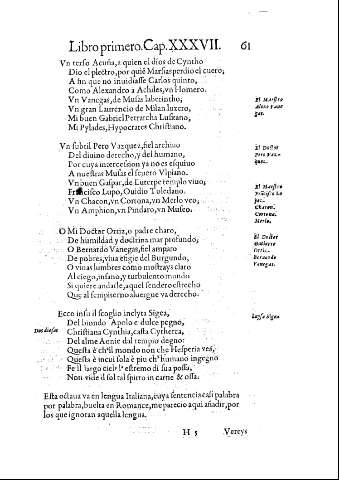 Libro primero. Cap. XXXVII. 61
Vn terso Acuña, a quien el dios de Cyntho
Dio el plectro, por quiē Marsias perdio el cuero,
A fin que no inuidiasse Carlos quinto,
Como Alexandro a Achiles, vn Homero.
Vn Vanegas, de Musas laberintho,
Vn gran Laurencio de Milan luzero,
Mi buen Gabriel Petrarcha Lusitano,
Mi Pylades, Hypocrates Christiano.
El Maestro
Alexo Vane
gas.
Vn subtil Pero Vazquez, fiel archiuo
Del diuino derecho, y del humano,
Por cuya intercession ya no es esquiuo
A nuestras Musas el seuero Vlpiano.
Vn buen Gaspar, de Euterpe templo viuo,
Frācisco Lupo, Ouidio Toledano.
Vn Chacon, vn Cortona, vn Merlo veo,
Vn Amphion, vn Pindaro, vn Museo.
El Doctor
Pero Vaz-
quez.
El Maestro
Frācisco Lo
pez.
Chacon.
Cortona.
Merlo.
O Mi Doctor Ortiz, o padre claro,
De humildad y doctrina mar profundo,
O Bernardo Vanegas, fiel amparo
De pobres, viua efigie del Burgundo,
O viuas lumbres como mostrays claro
Al ciego, insano, y turbulento mundo
Si quiere andarle, aquel sendero estrecho
Que al sempiterno aluergue va derecho.
El Doctor
Gutierre
Ortiz.
Bernardo
Vanegas.
Ecco insu il scoglio inclyta Sigea,
Del biondo Apolo e dulce pegno,
Christiana Cynthia, casta Cytherea,
Del alme Aenie dal tempio degno:
Questa è ch'il mondo non che Hesperia vea,
Questa è in cui sola è piu ch'humano ingegno
Fe il largo ciel l'estremo di sua possa,
Non vide il sol tal spirto in carne & ossa.
Luysa Sigea
Esta octaua va en lengua Italiana, cuya sentencia casi palabra
por palabra, buelta en Romance, me parecio aqui añadir, por
los que ignoran aquella lengua.
H 5 Vereys